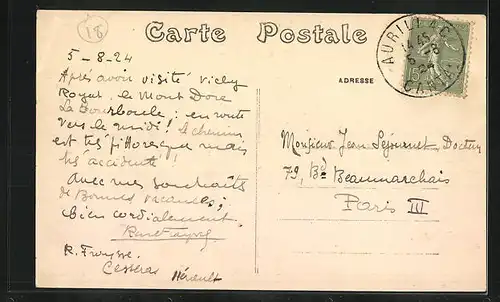 18
Carte Postale
AURILLAC
14 45
5-8
24
CANTAL
ADRESSE
5-8-24
Après avoir visité Vichy
Royat, le Mont Dore
La Bourboule; en route
vers le midi! le chemin
est très pittoresque mais
très accidenté!
Avec mes souhaits
de Bonnes vacances;
bien cordialement.
R. Fraysse.
Cesseras Hérault
Monsieur Jean Séjournet, Docteur
79, Bd Beaumarchais
Paris III